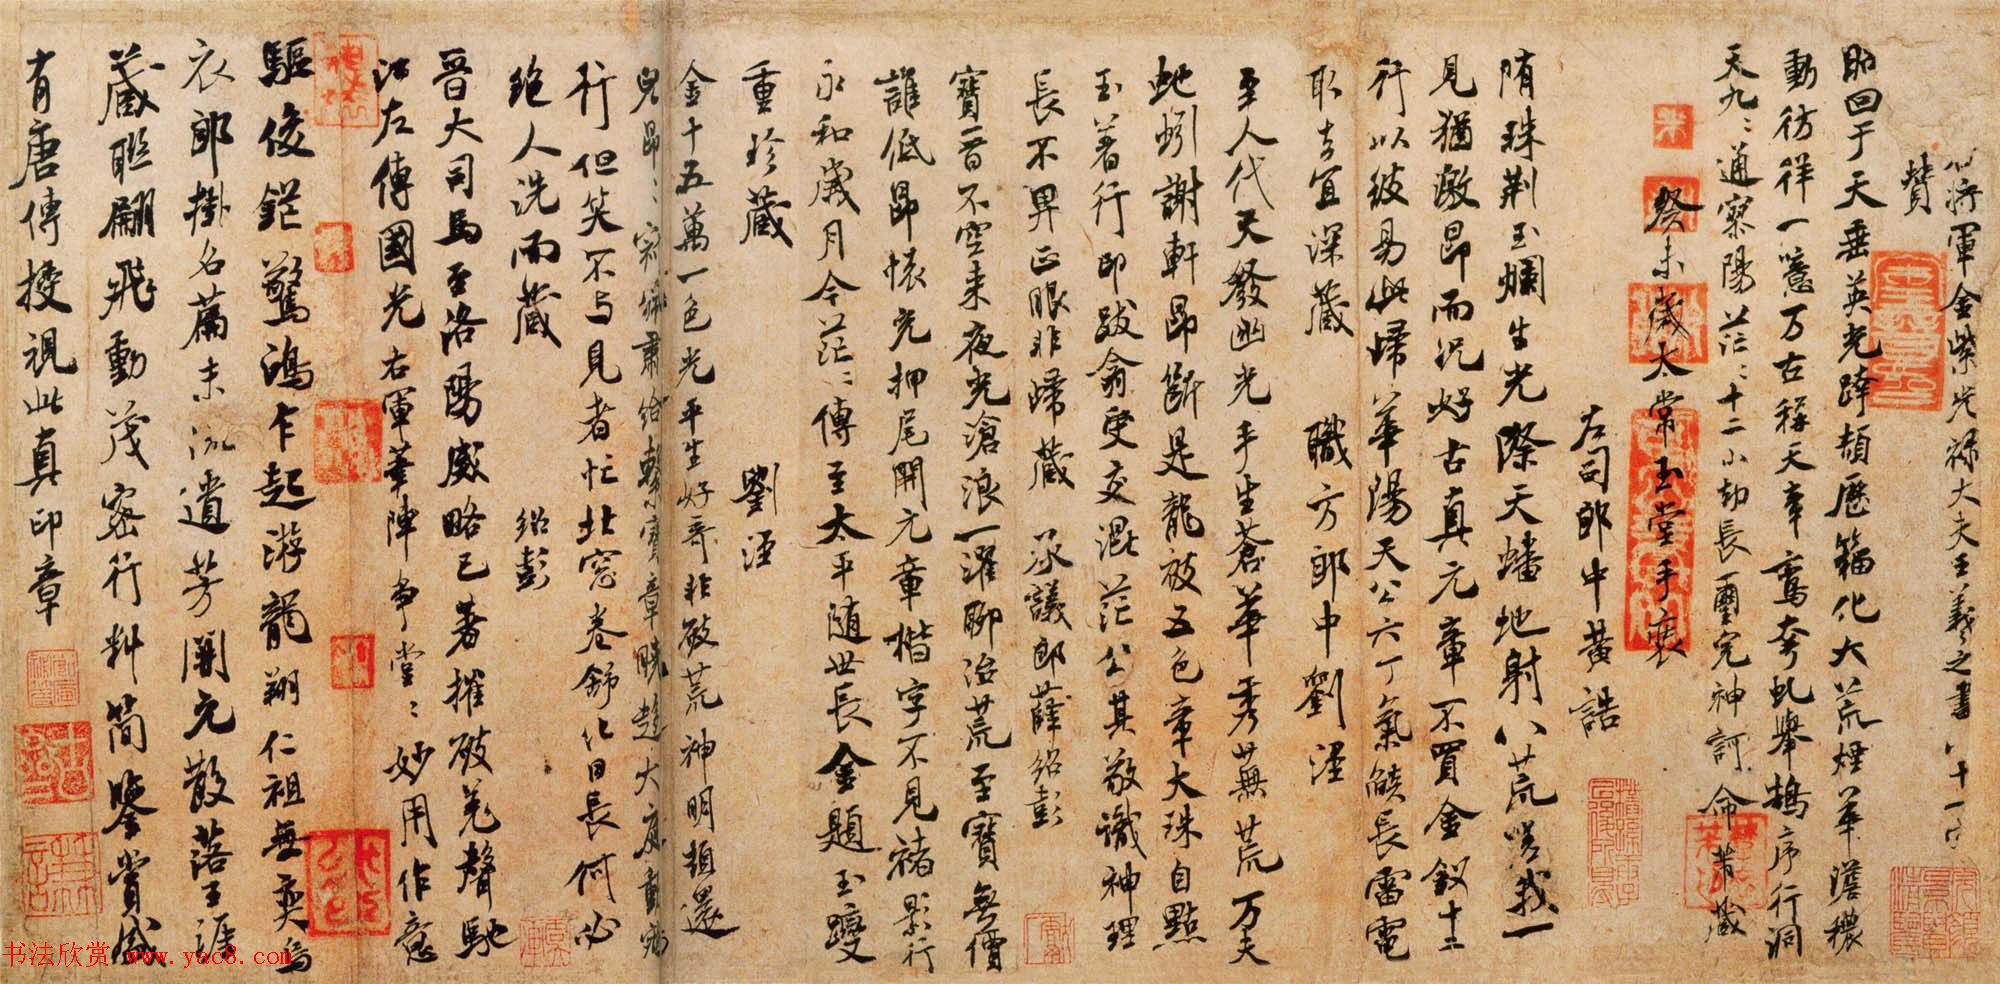 右將軍金紫光祿大夫王羲之書 八十一字
贊
昭回于天垂英光跨頡歷籀化大荒煙華澹穠
動彷徉一噫万古稱天章鸞夸虬舉鵠序行洞
天九〻通寥陽茫〻十二小劫長璽完神訶命芾藏
癸未歲太常玉堂手裝
左司郎中黃誥
隋珠荆玉爛生光際天蟠地射八荒嗟我一
見猶激昂而況好古真元章不買金釵十二
行以彼易此歸華陽天公六丁氣燄長雷電
取去宜深藏 職方郎中劉涇
至人代天發幽光手生蒼華秀蕪荒万夫
虵蚓謝軒昂斷是龍被五色章大珠自點
玉著行印跋翕受交混茫公其敬識神理
長不畀正眼非歸藏 承議郎薛紹彭
寶晉不空来夜光滄浪一濯聊治荒至寶無價
誰低昂懷充押尾開元章楷字不見褚影行
永和歲月今茫〻傳至太平隨世長金題玉躞
重珍藏
劉涇
金十五萬一色光平生好奇非破荒神明頓還
行但笑不与見者忙北窓卷舒化日長何必
絶人洗而藏
紹彭
晉大司馬至洛陽威略已著摧破羌聲馳
江左傳國光右軍華陣爭堂〻妙用作意
驅俊鋩驚鴻乍起游龍翔仁祖無奕為
衣郎掛名篇末流遺芳開元散落王涯
藏聯翩飛動茂密行料簡鑒賞盛
有唐傳授視此真印章
书法欣赏 www.yac8.com